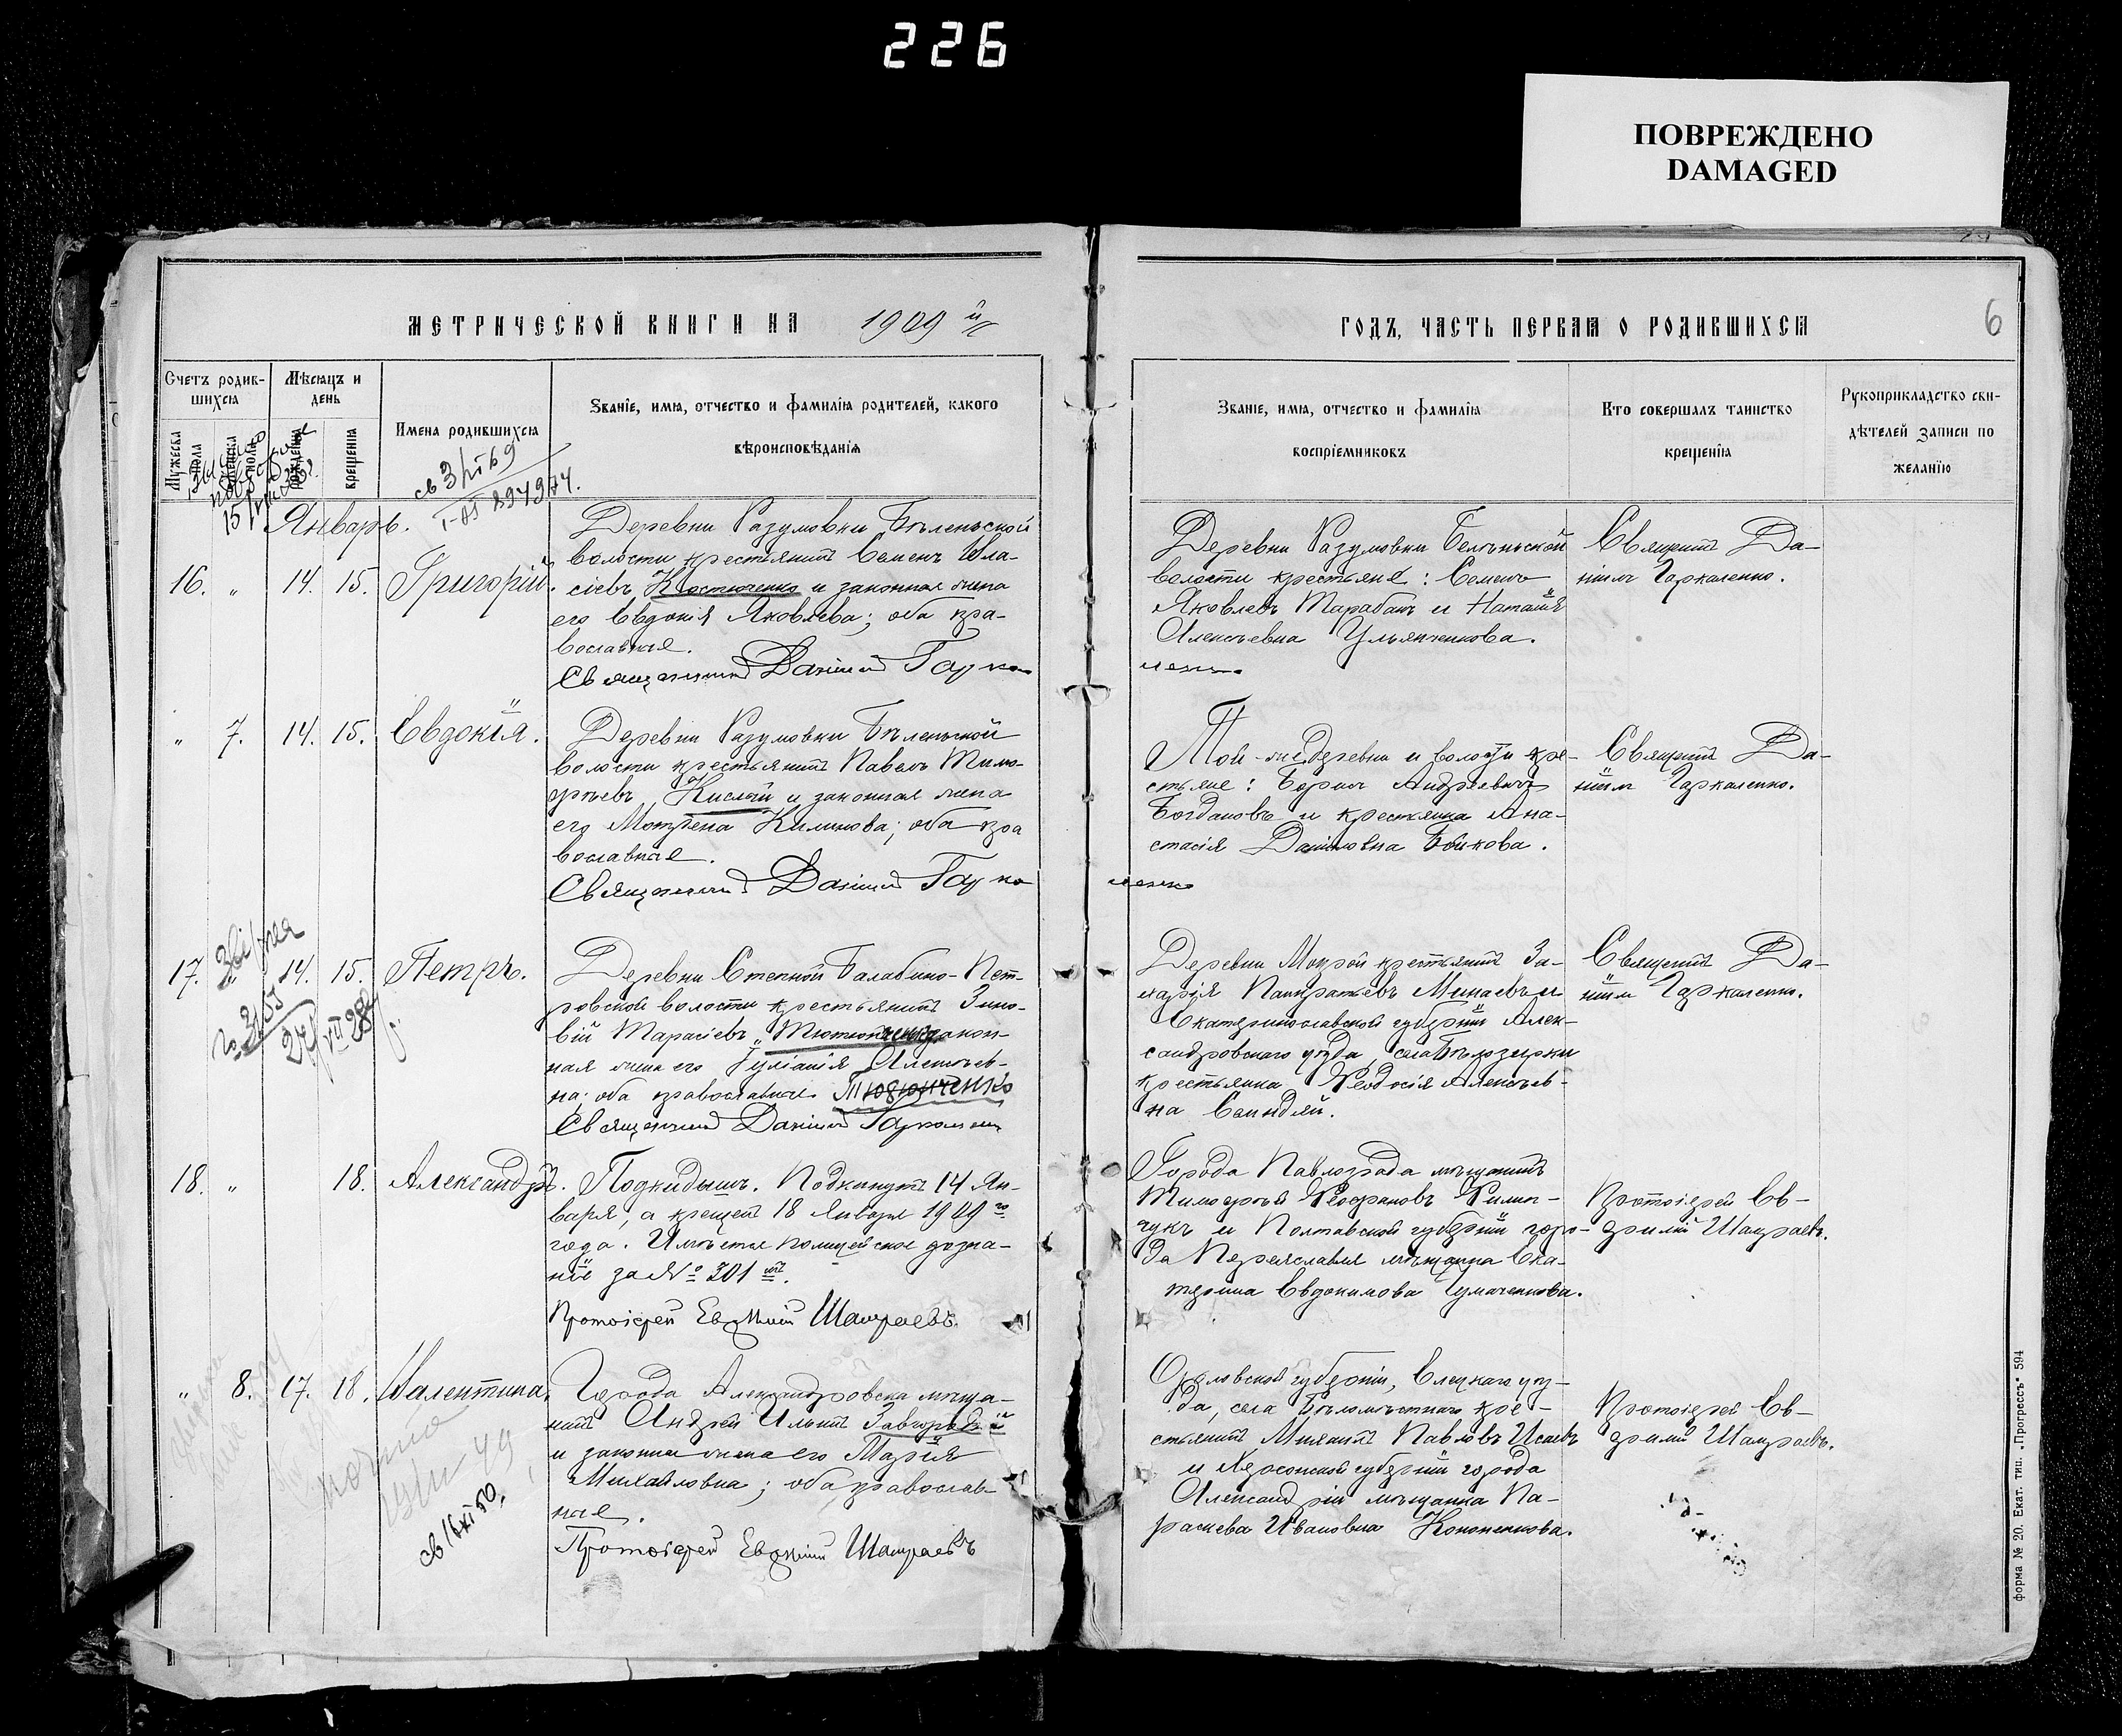 226
ПОВРЕЖДЕНО
DAMAGED
МЕТРИЧЕСКОЙ КНИГИ НА 1909 й
ГОДЪ, ЧАСТЬ ПЕРВАЯ О РОДИВШИХСЯ
6
Счетъ родив-
шихся
Мѣсяцъ и
день
Мужеска
пола
Женска
пола
рожденія
крещенія
Имена родившихся
Званіе, имя, отчество и фамилія родителей, какого
вѣроисповѣданія
Званіе, имя, отчество и фамилія
воспріемниковъ
Кто совершалъ таинство
крещенія
Рукоприкладство сви-
дѣтелей записи по
желанію
Январь.
16. " 14. 15. Григорій.
Деревни Разумовки Бѣленьской
волости крестьянинъ Семенъ Вла-
сіевъ Костюченко и законная жена
его Евдокія Яковлева; оба пра-
вославные.
Священникъ Даніилъ Гарка
Деревни Разумовки Беленьской
волости крестьяне: Семенъ
Яковлевъ Тарабанъ и Наталія
Алексѣевна Ульянченкова.
ленко
Священ. Да-
ніилъ Гаркаленко.
" 7. 14. 15. Евдокія.
Деревни Разумовки Бѣленьской
волости крестьянинъ Павелъ Тимо-
фѣевъ Кислый и законная жена
его Мотрена Климова; оба пра
вославные.
Священникъ Даніилъ Гарка
Той-же деревни и волости кре-
стьяне: Борисъ Андреевичъ
Богдановъ и крестьянка Ана-
стасія Даніиловна Бойкова.
ленко
Священ. Да-
ніилъ Гаркаленко.
17. " 14. 15. Петръ.
Деревни Степной Балабино-Пет-
ровской волости крестьянинъ Зино-
вій Тарасіевъ Тютюнченко закон-
ная жена его Іуліанія Алексѣев-
на; оба православные. Тютюнченко
Священникъ Даніилъ Гаркаленко
Деревни Мокрой крестьянинъ За-
харія Панкратьевъ Минаевъ и
Екатеринославской губерніи Алек-
сандровскаго уѣзда, села Бѣлозерки
крестьянка Ѳеодосія Алексѣев-
на
Священ. Да-
ніилъ Гаркаленко.
18. " 18. Александръ.
Подкидышъ. Подкинутъ 14 Ян-
варя, а крещенъ 18 Января 1909 го
года. Имѣется полицейское дозна-
ніе за № 301 мъ.
Протоіерей Евѳимій
Города Павлограда мѣщанинъ
Тимофей Ѳеофановъ
чукъ и Полтавской губерніи горо-
да Переяславля мѣщанка Ека-
терина Евдокимова Чумаченкова.
Протоіерей Ев-
ѳимій
" 8. 17. 18. Валентина.
Города Александровска мѣща-
нинъ Андрей Ильинъ Завгородній
и законная жена его Марія
Михайловна; оба православ-
ные.
Протоіерей Евѳимій
Орловской губерніи, Елецкаго уѣз-
да, села Бѣломѣстнаго кре-
стьянинъ Павловъ Исаевъ
и Херсонской губерніи города
Александріи мѣщанка Па-
раскева Ивановна Кононенкова.
Протоіерей Ев-
ѳимій
форма № 20. Екат. тип. „Прогрессъ" 594